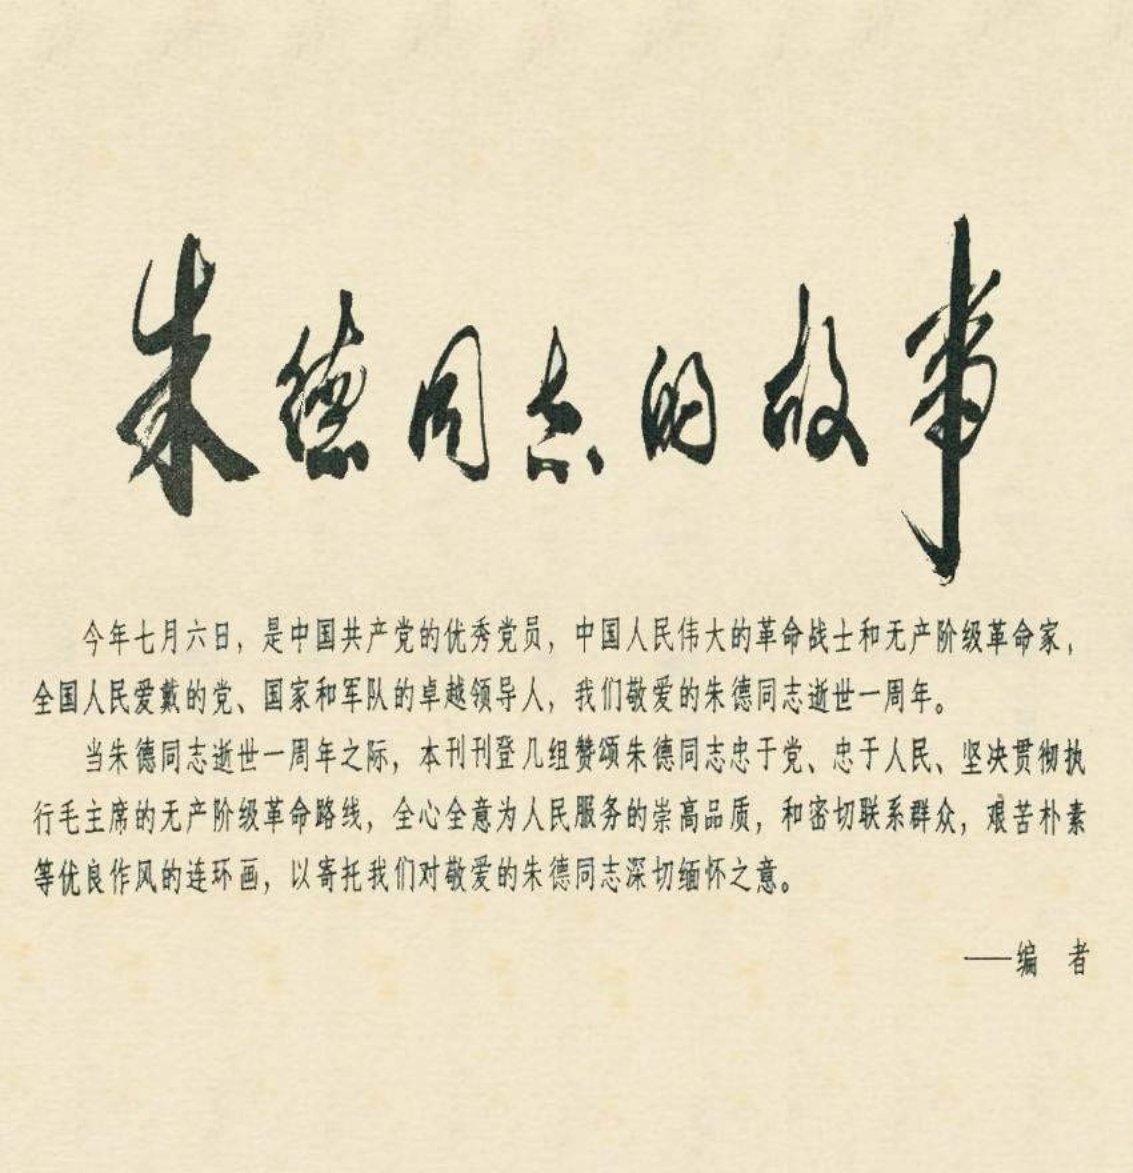 朱德同志的故事
今年七月六日，是中国共产党的优秀党员，中国人民伟大的革命战士和无产阶级革命家，
全国人民爱戴的党、国家和军队的卓越领导人，我们敬爱的朱德同志逝世一周年。
当朱德同志逝世一周年之际，本刊刊登几组赞颂朱德同志忠于党、忠于人民、坚决贯彻执
行毛主席的无产阶级革命路线，全心全意为人民服务的崇高品质，和密切联系群众，艰苦朴素
等优良作风的连环画，以寄托我们对敬爱的朱德同志深切缅怀之意。
——编　者